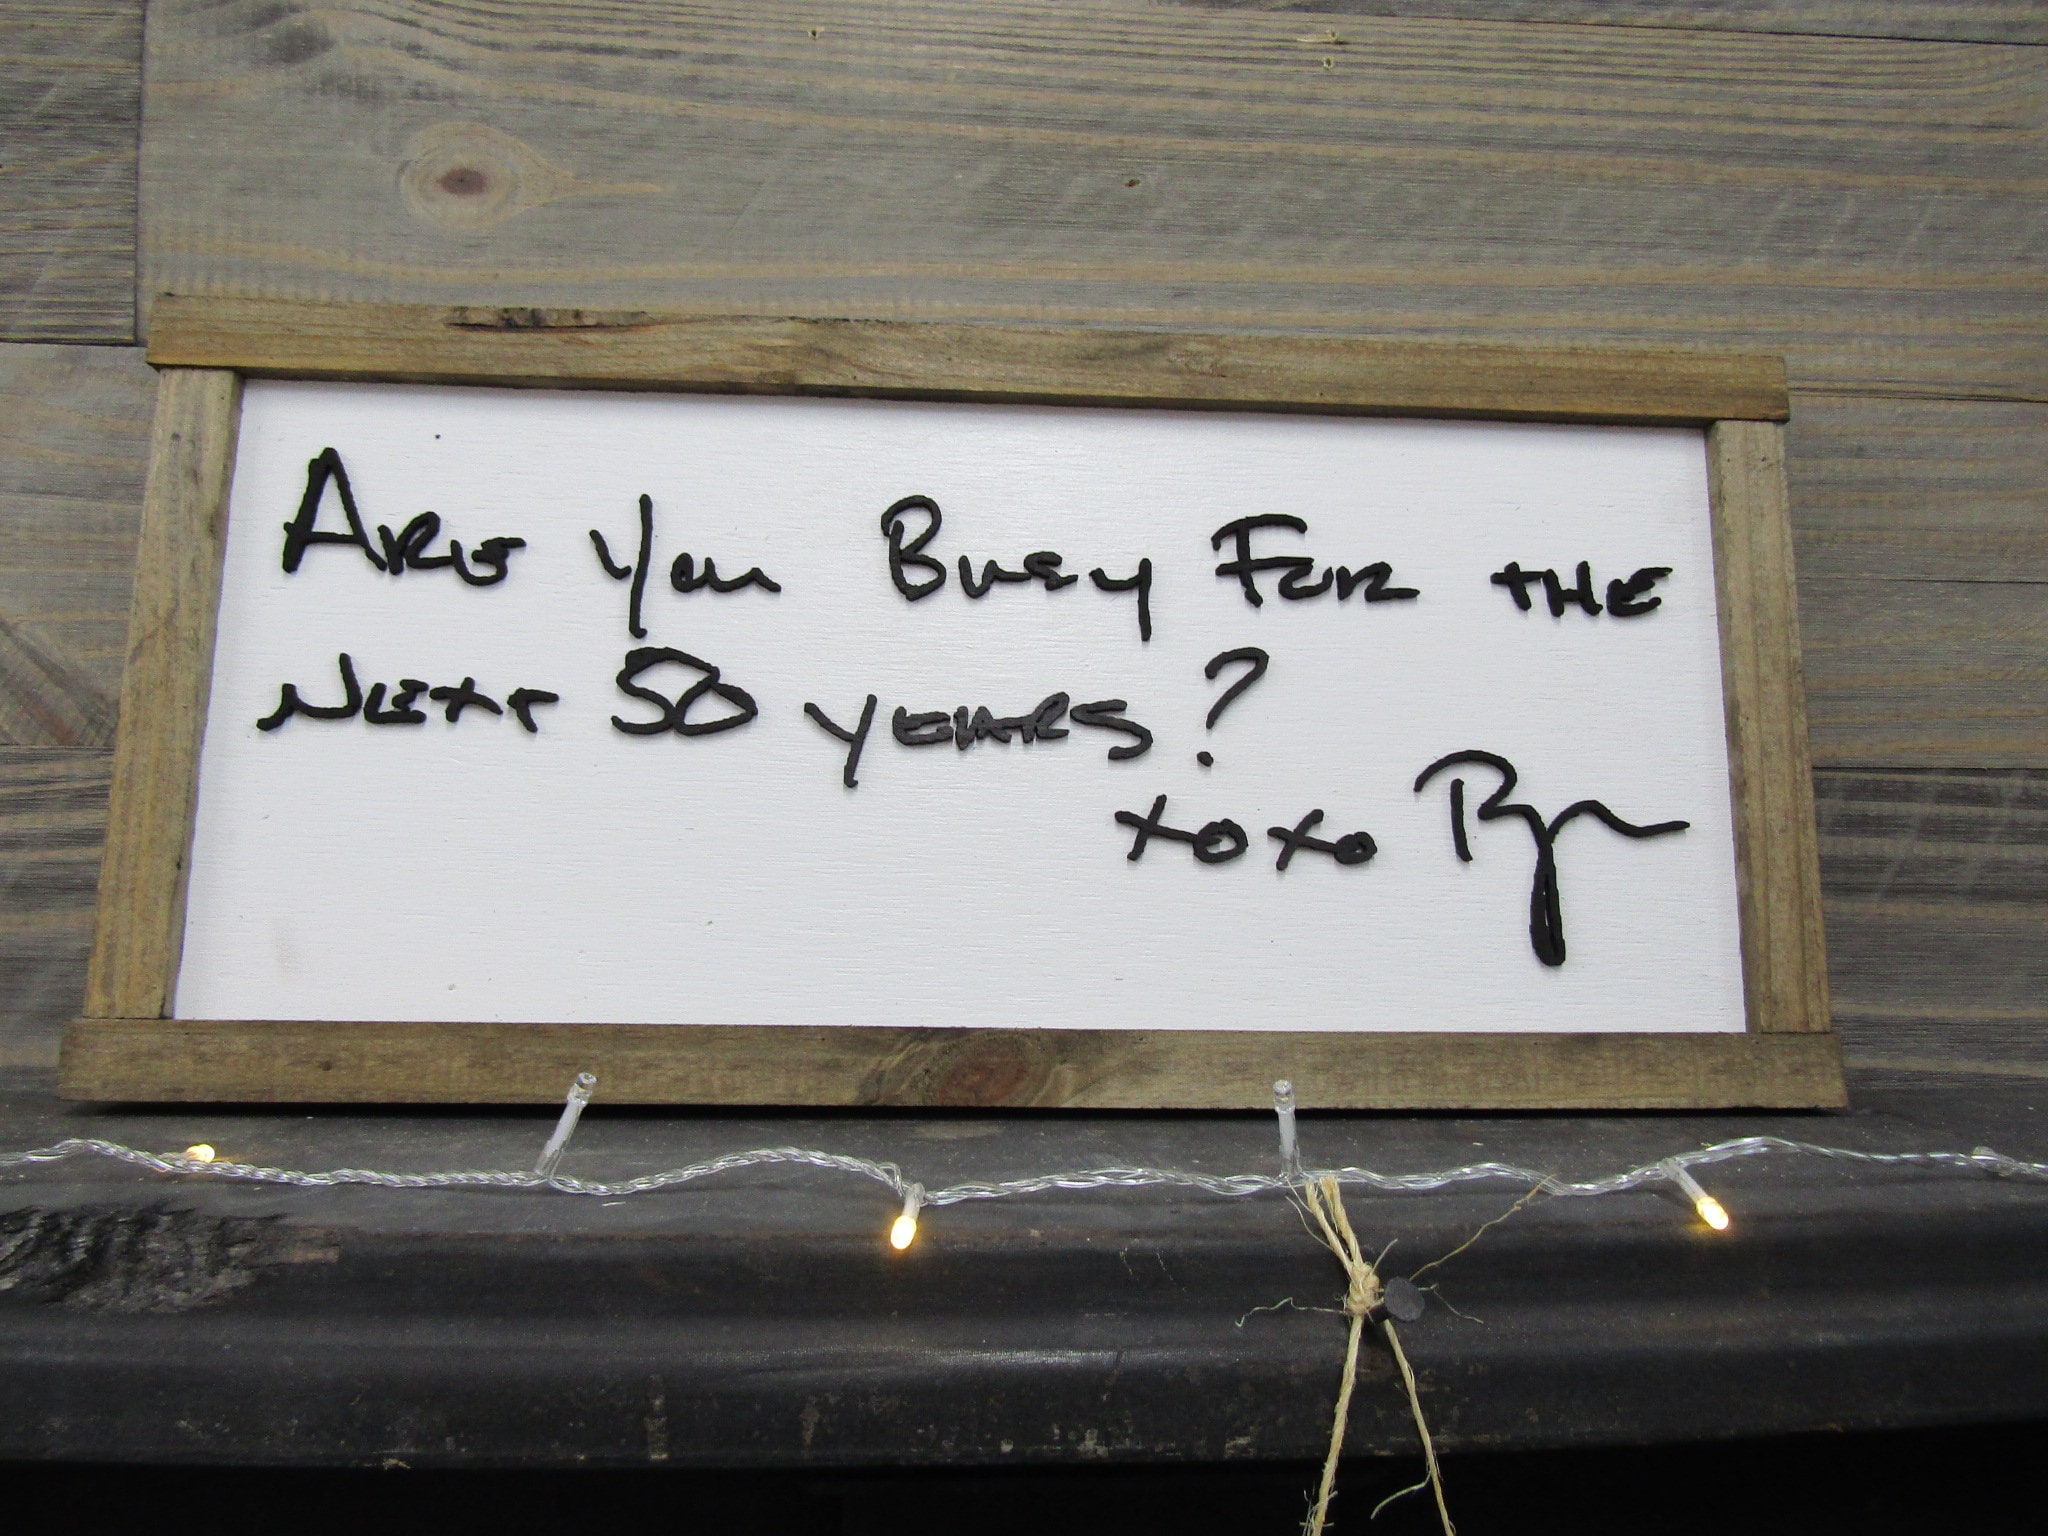 Are You Busy For the
Next 50 years?
xoxo Ryan